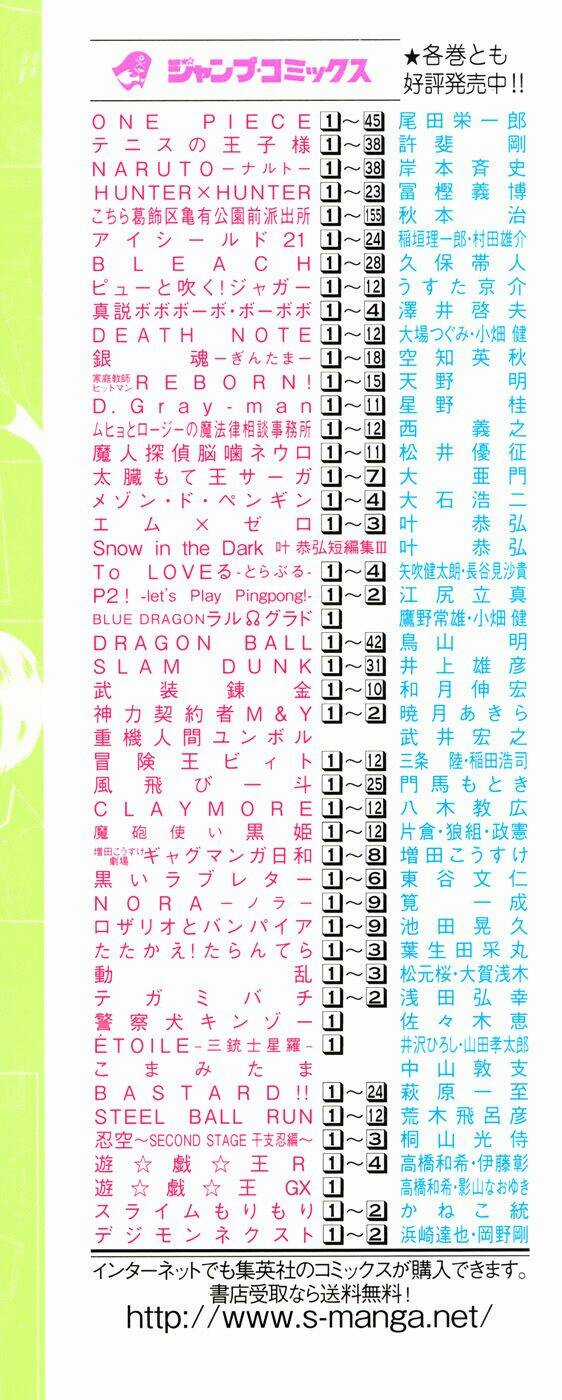 ジャンプ・コミックス
★各巻とも
好評発売中!!
ONE PIECE 1～45 尾田栄一郎
テニスの王子様 1～38 許斐 剛
NARUTO－ナルト－ 1～38 岸本斉史
HUNTER×HUNTER 1～23 冨樫義博
こちら葛飾区亀有公園前派出所 1～155 秋本 治
アイシールド21 1～24 稲垣理一郎・村田雄介
BLEACH 1～28 久保帯人
ピューと吹く!ジャガー 1～12 うすた京介
真説ボボボーボ・ボーボボ 1～4 澤井啓夫
DEATH NOTE 1～12 大場つぐみ・小畑 健
銀魂－ぎんたま－ 1～18 空知英秋
家庭教師ヒットマンREBORN! 1～15 天野 明
D.Gray-man 1～11 星野 桂
ムヒョとロージーの魔法律相談事務所 1～12 西 義之
魔人探偵脳噛ネウロ 1～11 松井優征
太臓もて王サーガ 1～7 大亜門
メゾン・ド・ペンギン 1～4 大石浩二
エム×ゼロ 1～3 叶 恭弘
Snow in the Dark 叶 恭弘短編集Ⅲ 叶 恭弘
To LOVEる-とらぶる- 1～4 矢吹健太朗・長谷見沙貴
P2! -let's Play Pingpong!- 1～2 江尻立真
BLUE DRAGONラルΩグラド 1 鷹野常雄・小畑 健
DRAGON BALL 1～42 鳥山 明
SLAM DUNK 1～31 井上雄彦
武装錬金 1～10 和月伸宏
神力契約者M&Y 1～2 暁月あきら
重機人間ユンボル 武井宏之
冒険王ビィト 1～12 三条 陸・稲田浩司
風飛び一斗 1～25 門馬もとき
CLAYMORE 1～12 八木教広
魔砲使い黒姫 1～12 片倉・狼組・政憲
増田こうすけ劇場ギャグマンガ日和 1～8 増田こうすけ
黒いラブレター 1～6 東谷文仁
NORA－ノラ－ 1～9 筧 一成
ロザリオとバンパイア 1～9 池田晃久
たたかえ!たらんてら 1～3 葉生田采丸
動乱 1～3 松元桜・大賀浅木
テガミバチ 1～2 浅田弘幸
警察犬キンゾー 1 佐々木恵
ÉTOILE-三銃士星羅- 1 井沢ひろし・山田孝太郎
こまみたま 中山敦支
BASTARD!! 1～24 萩原一至
STEEL BALL RUN 1～12 荒木飛呂彦
忍空～SECOND STAGE 干支忍編～ 1～3 桐山光侍
遊☆戯☆王R 1～4 高橋和希・伊藤彰
遊☆戯☆王GX 1 高橋和希・影山なおゆき
スライムもりもり 1～2 かねこ統
デジモンネクスト 1～2 浜崎達也・岡野剛
インターネットでも集英社のコミックスが購入できます。
書店受取なら送料無料!
http://www.s-manga.net/